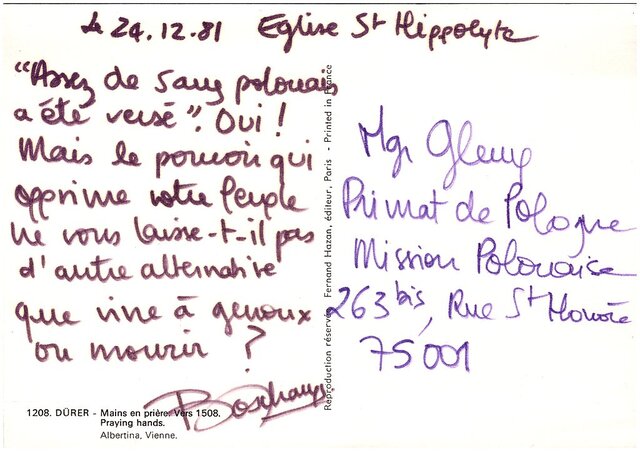 Le 24.12.81 Eglise St Hippolyte
"Assez de sang polonais
a été versé". Oui !
Mais le pouvoir qui
opprime votre Peuple
ne vous laisse-t-il pas
d'autre alternative
que vivre à genoux
ou mourir ?
1208. DÜRER - Mains en prière. Vers 1508.
Praying hands.
Albertina, Vienne.
Reproduction réservée Fernand Hazan, éditeur, Paris - Printed in France
Mgr Glemp
Primat de Pologne
Mission Polonaise
263 bis, Rue St Honoré
75001